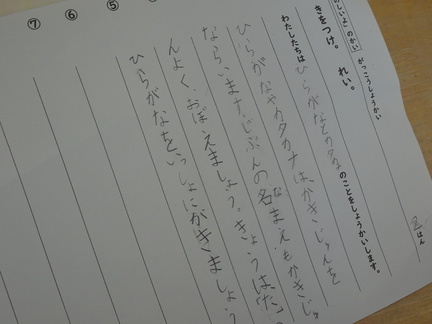 のしいよ」のかい
がっこうしょうかい
きをつけ。 れい。
2はん
わたしたちは ひらがなとカタカナのことをしょうかいします。
ひらがなやカタカナは、かきじゅんを
ならいます。じぶんの名まえもかきじゅ
んよく、おぼえましょう。きょうは、
ひらがなをいっしょにかきましょう
⑤
⑥
⑦